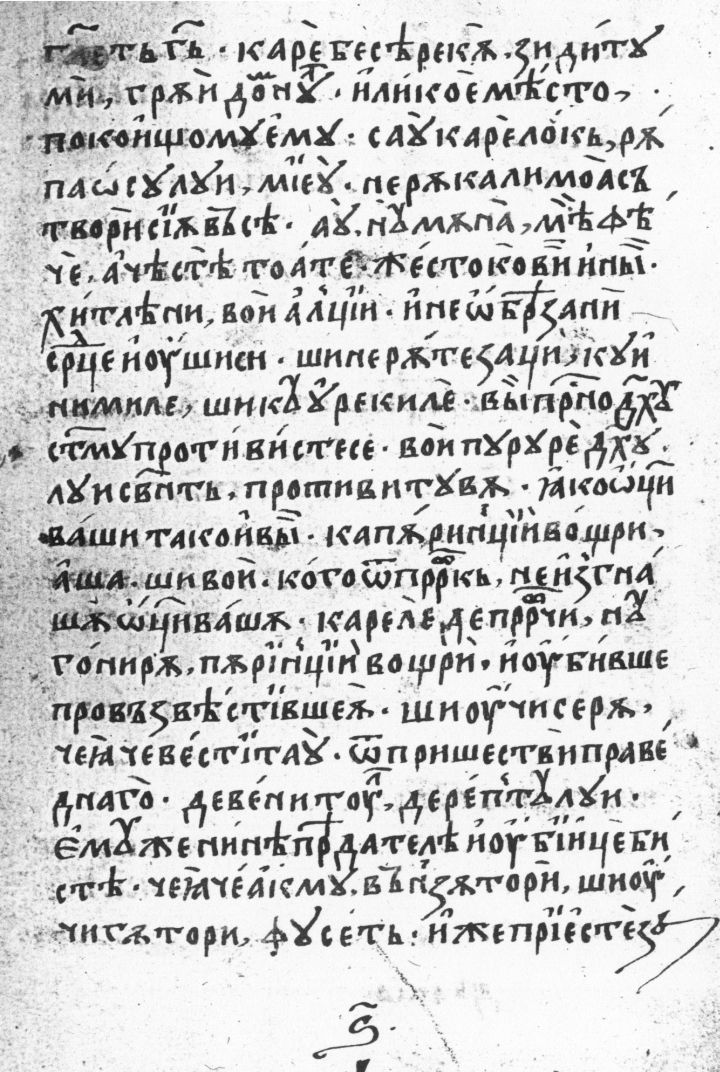 глеть гь · каре бесѣрекѫ, зидиту
ми, грѫи домнꙋл · или кое мѣсто,
покоищомꙋ емꙋ · саꙋ каре локь, рѫ
паѡсулуи, мїеꙋ · не рѫка ли моѧ съ
твори сїѧ въсѣ · аꙋ, нꙋ мѫна, мѣ фѣ
че, ачѣстѣ тоате · жестоковїи и нѡ
хитлѣни, вои алцїи · и не ѡбрѣзани
срⷣце и оушиси · ши нерѫтезаци, ку и
нимиле, ши кꙋ урекиле · ви присно дх҃ꙋ
ст҃мꙋ противистесе · вои пурурѣ дх҃ꙋ
луи свⷩть, противитувѫ · ꙗко ѡци
ваши тако и ви · ка пѫринцїи вощри,
аша · ши вои · кого ѿ пррⷪкь, не изгна
шѫ ѡци вашѫ · каре ле де пррⷪчи, нꙋ
гонирѫ, пѫринцїи вощри · и оубивше
провъзвѣстївшеѧ · ши оучисерѫ,
чеꙗ че вестїтаꙋ · ѿ пришествїи праве
днаго · де венитоул, дерептꙋлуи ·
емꙋже нинѣ прⷣдателѣ и оубїице би
сте · чеꙗ че аікму, вънзѫтори, ши оу
чигѫтори, фусеть · иже прїестезⷤ
ѕ҃ ·